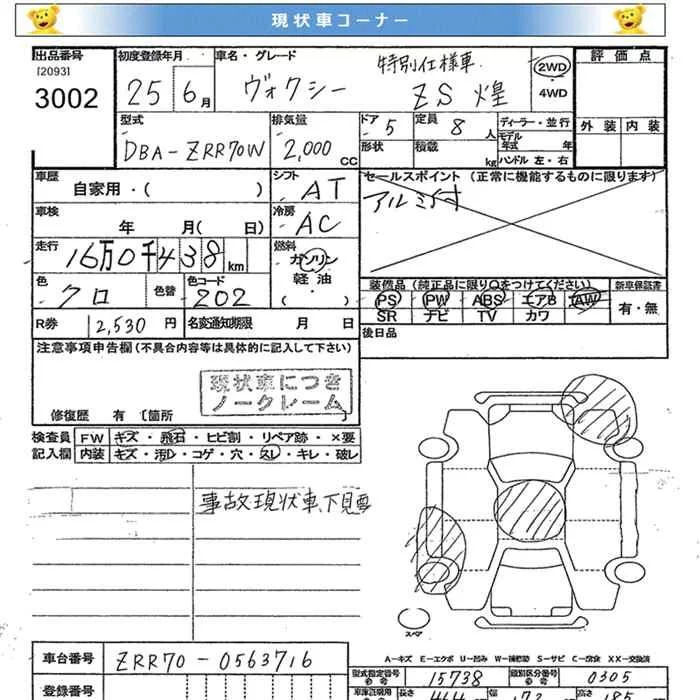 現状車コーナー
出品番号 初度登録年月 車名・グレード 特別仕様車 2WD 評価点
[2093]
3002 25 6月 ヴォクシー ZS 煌 4WD
型式 排気量 ドア 5 定員 8人 ディーラー・並行 外装 内装
DBA-ZRR70W 2,000cc 形状 積載 kg モデル年式 年
ハンドル 左・右
車歴 自家用・( ) シフト AT セールスポイント (正常に機能するものに限ります)
アルミ付
車検 年 月( 日) 冷房 AC
走行 16万0千438km 燃料 ガソリン
軽油
・( )
色 クロ 色替 色コード 202 装備品 (純正品に限り○をつけてください) 新車保証書
PS PW ABS エアB AW 有・無
SR ナビ TV カワ
R券 12,530円 名変通知期限 月 日 後日品
注意事項申告欄 (不具合内容等は具体的に記入して下さい)
現状車につき
ノークレーム
修復歴 有 〔箇所 〕
検査員 FW キズ・飛石・ヒビ割・リペア跡・×要
記入欄 内装 キズ・汚レ・コゲ・穴・スレ・キレ・破レ
事故現状車、下見要
スペア
A-キズ E-エクボ U-凹み W-補修跡 S-サビ C-腐食 XX-交換済
車台番号 ZRR70-0563716
型式指定番号 15738 類別区分番号 0305
登録番号 長さ 464 幅 172 高さ 185